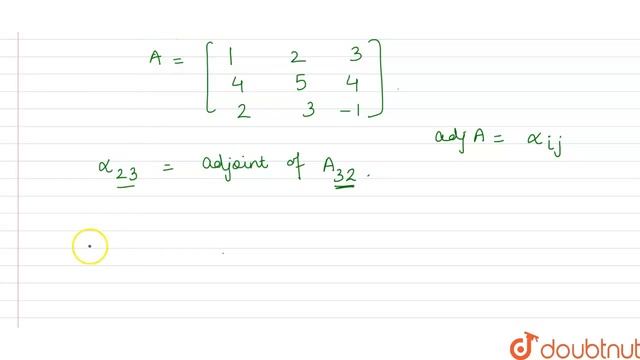 A = [ 1 2 3
4 5 4
2 3 -1 ] .
adj A = α ij
α 23 = adjoint of A 32 .
doubtnut